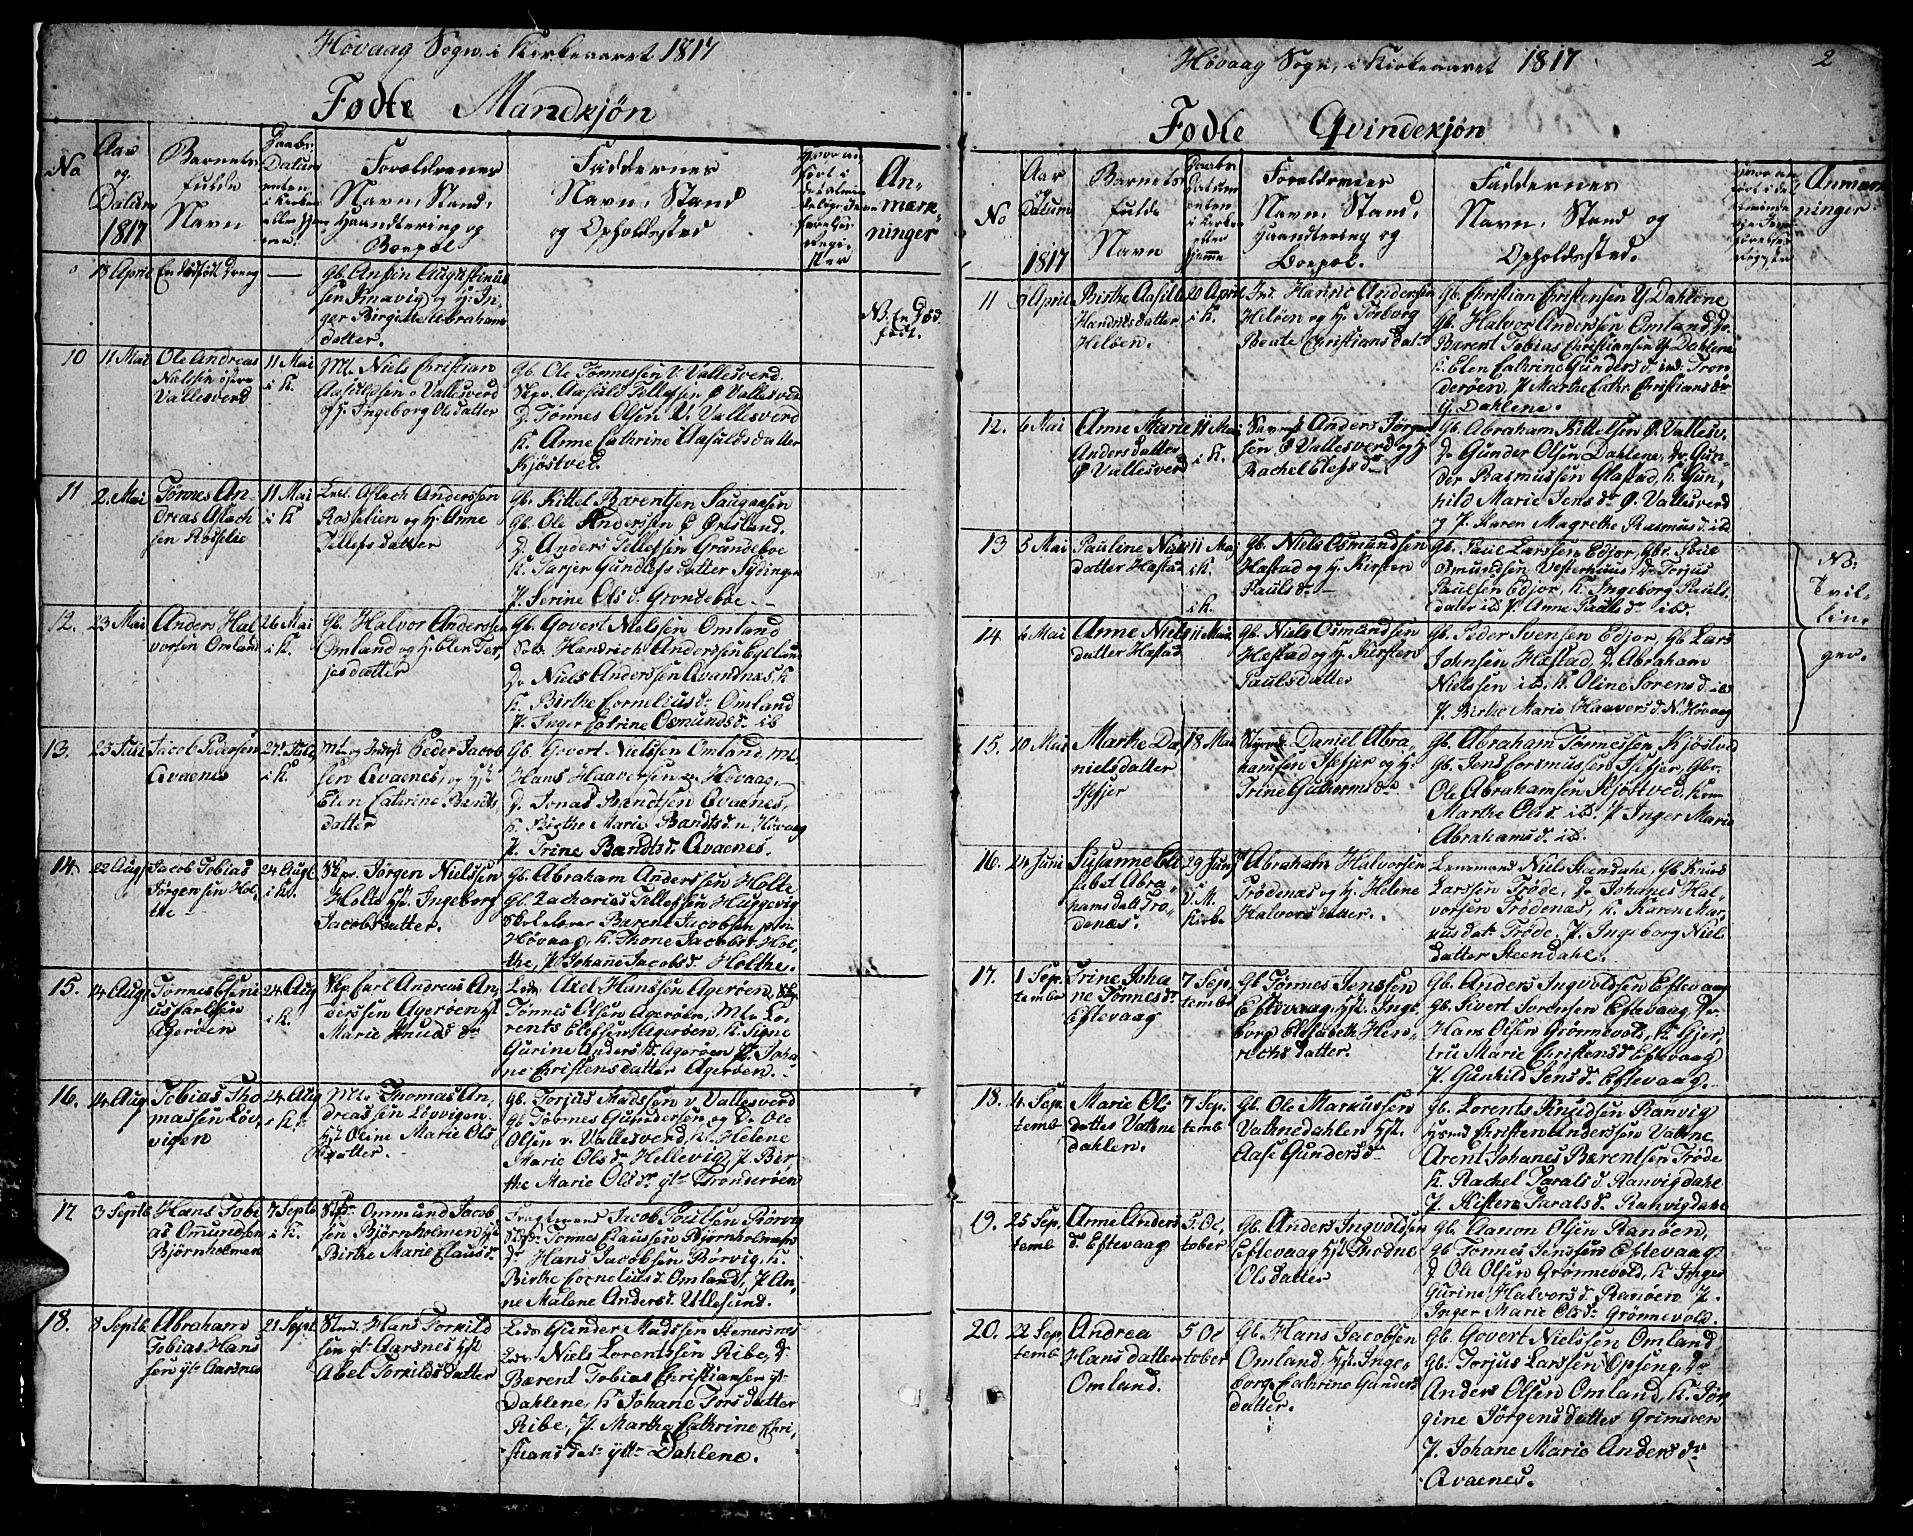 Høvaag Sogn, i Kirkeaaret 1817
Fødte Mandkjøn
No
Aar
og
Datum
1817
Barnets
fulde
Navn
Daabs
Datum
enten
i Kirken
eller hjem
me.
Forældrenes
Navn, Stand,
Haandtering og
Boepæl
Faddernes
Navn, Stand
og Opholdssted
An-
mærk-
ninger
13 April
En dødfødt Dreng
—
Gb. Ansin Augustinus
sen Smavig og H: In
ger Birgitte Abrahams
datter.
NB. En Død
født.
10
11 Mai
Ole Andreas
Nielsen øvre
Vallesverd
11 Mai
i K.
Mt. Niels Christian
Aasuldsen o Vallesverd
og H. Ingeborg Olsdatter
Gb. Ole Tønnessen V. Vallesverd.
Skpr. Aasuld Tellefsen Ø Vallesverd
D. Tønnes Olsen V. Vallesverd
K. Anne Cathrine Aasulds datter
Kjøstved.
11
2. Mai
Tønnes An
dreas Aslach
sen Rosselie
11 Mai
i K
Aslach Anderssen
Rosselien og H. Anne
Tellefsdatter
Gb. Kittel Barentsen
Gb. Ole Anderssen Ø Øresland.
D. Anders Tellefsen Grundeboe
K. Tarjer Gundlefs datter
P. Serine Ols d. Grondeboe –
12.
23 Mai
Anders Hal
vorsen Omland
26 Mai
i K.
Gb. Halvor Anderssen
Omland og H. Elen Ter
jesdatter
Gb. Govert Nielssen Omland
Hendrich Anderssen
D. Niels Anderssen Qvandnæs, K
K. Birthe Cornelius d. Omland
P. Inger Catrine Osmunds d. ib
13.
25 Juli
Jacob Pedersen
Qvaenes
27 Juli
i K.
Mt. Peder Jacob
sen Qvaenes, og Hst
Elen Cathrine Bendts
datter
Gb. Govert Nielssen Omland, Mt.
Hans Haaversen n. Høvaag,
D. Jonas Bendtsen Qvaenes,
K. Birthe Marie Bendts d. n. Høvaag
P. Trine Bendts d. Qvaenes.
14.
22 Aug
Jacob Tobias
Jørgensen Hol
te –
24 Aug
i K.
Skpr. Jørgen Nielssen
Holte Hst. Ingeborg
Jacobsdatter.
Gb. Abraham Anderssen Holte
Gb. Zacharias Tellefsen Huggevig
Skoleholder Barent Jacobsen
Høvaag, K. Thone Jacobs d. Hol
the, P. Johane Jacobs d. Holthe.
15.
14 Aug
Tønnes Eseni
us Carlsen
Agerøen
24 Aug
i K.
Skp Carl Andreas An
derssen Agerøen Hst
Marie Knuds dr
Lods. Axel Hanssen Agerøen, Skp.
Tønnes Olsen Agerøen, Mt. Lo
rents Elefsen Agerøen, K. Signe
Gurine Anders d. Agerøen P. Joha
ne Christensdatter Agerøen.
16.
14 Aug
Tobias Tho
massen Løv,
vigen
24 Aug
i K.
Mt. Thomas An,
dreassen Løvvigen.
Hst Oline Marie Ols
datter.
Gb. Torjus Madssen v. Vallesverd
Gb. Tønnes Gundersen og D. Ole
Olsen v. Vallesverd, K. Helene
Marie Ols dr Hellevig, P. Bir
the Marie Ols dr yt. Trønderøen
17
3 Septb.
Hans Tobi
as Omundsen
Bjørnholmen
7 Septb
i K.
Skp. Ommund Jacob
sen Bjørnholmen Hst
Birthe Marie Claus d.
Jacob Poulsen Børvig
Skp. Tønnes Claussen Bjørnholmen
D. Hans Jacobsen Børvig, K.
Birthe Cornelius d. Omland, P. An
ne Malene Anders d. Ullesund.
18.
8 Septb.
Abraham
Tobias Hans
sen yt. Aarsnes
21 Sept
Hans Torkild
sen yt. Aarsnes Hst
Abel Torkilds datter
Lods Gunder Madssen Stenersnes
Lods. Niels Lorentssen Ribe, D.
Bærent Tobias Christiansen yt.
Dahlene, K. Johane Tors datter
Ribe, P. Marthe Cathrine Chri,
stians dat. ytt. Dahlene.
Høvaag Sogn, i Kirkeaaret 1817.
2
Fødte Qvindekjøn
No
Aar
og
Datum
1817
Barnets
fulde
Navn
Daabs
Datum
enten
i Kirken
eller
hjemme
Forældrenes
Navn, Stand,
Haandtering og
Boepæl.
Faddernes
Navn, Stand og
Opholdssted.
Anmærk
ninger
11
9 April
Birthe Aasille
Hendricsdatter
Heløen.
20 April
i K.
Henric Andersen
Heløen og H. Torborg
Beate Christians dat.
Gb. Christian Christensen Y. Dahlene
Gb. Halvor Anderssen Omland, D.
Bærent Tobias Christiansen Y. Dahlene
K. Elen Cathrine Gunders d. ind. Tron
derøen, P. Marthe Cathr. Christians dr.
y. Dahlene.
12.
6 Mai
Anne Marie
Anders datter
Ø Vallesverd
11 Mai
i K.
Anders Jørgen
sen Ø Vallesverd og H.
Rachel Elefs dr –
Gb. Abraham Kittelsen Ø. Vallesv.
D. Gunder Olsen Dahlene, Gun-
der Rasmussen Glastad, K. Gun-
hild Marie Jens dr Ø. Vallesverd
og P. Karen Magrethe Rasmus d. ib
13
5 Mai
Pauline Niels
datter Hæstad
11 Mai
i K.
Gb. Niels Osmundsen
Hæstad og H. Kirsten
Pauls dr –
Gb. Paul Larssen Edjor, Gbr.
Osmundsen Vesterhuus D. Torjus
Paulsen Edjor, K. Ingeborg Pauls
datter ib P. Anne Pauls dr ibd.
NB.
Tvil-
lin-
ger.
14
6 Mai
Anne Niels
datter Hæstad
i K.
11 Mai.
Gb. Niels Osmundsen
Hæstad og H. Kirsten
Paulsdatter
Gb. Peder Svensen Edjor, Gb Lars
Johnsen Hæstad, D. Abraham
Nielssen ib. K. Oline Sørens d. ib
P. Birthe Marie Haavers d. N. Høvaag
15.
10 Mai
Marthe Da
nielsdatter
Isefjer
18 Mai
Daniel Abra
hamsen Isefjer og H.
Trine Guttorms d.
Gb. Abraham Tønnessen Kjøstved
Gb. Jens Isefjer, Gbr.
Ole Abrahamsen Kjøstved, Kone
Marthe Ols d. ib. P. Inger Marie
Abrahams d. ib.
16.
24 Juni
Susanne Eli
sabet Abra
hams datt Trø
denæs.
29 Juni
i
V. M.
Kirke
Abraham Halvorsen
Trødenæs og H. Helene
Halvors datter.
Lensmand Niels Steendahl, Gb Knud
Larssen Trøde, D. Johanes Hal
vorsen Trødenæs, K. Karen Mar,
nus dat. Trøde. P. Ingeborg Niels
datter Steendahl.
17.
1 Sep,
tember
Trine Joha
ne Tønnes d.
Eftevaag
7 Sep,
tember
Gb. Tønnes Jenssen
Eftevaag, Hst. Inge
borg Elisabeth Hen
richs datter.
Gb. Anders Ingvoldsen Eftevaag
Gb. Sivert Sørensen Eftevaag D.
Hans Olsen Grønnevold, K. Gjer,
tru Marie Christens d. Eftevaag
P. Gunhild Jens d. Eftevaag.
18.
4 Sep,
temb
Marie Ols
datter Vatne
dahlen.
7 Sep.
temb
Gb. Ole Markussen
Vatnedahlen Hst.
Aase Gunders dr
Gb. Lorents Knudsen Ranvig
Christen Anderssen Vatne
Arent Johanes Bærentsen Trøde
K. Rachel Tarals d. Ranvigdahl
P. Kisten Tarals d. Ranvigdahl
19.
25 Sep,
temb
Anne Anders
d. Eftevaag
5. Oc
tober
Gb. Anders Ingvoldsen
Eftevaag Hst. Thodne
Olsdatter
Gb. Aanon Olsen Ranøen,
Gb Tønnes Jenssen Eftevaag
D Ole Olsen Grønnevold, K. Inger
Gurine Halvors d. Ranøen P.
Inger Marie Ols dr Grønnevold.
20.
22 Sep,
temb
Andrea
Hans datter
Omland.
5 Oc
tober
Gb. Hans Jacobsen
Omland, Hst. Inge-
borg Cathrine Gunders
datter.
Gb. Govert Nielssen Omland
Gb. Torjus Larssen Opseng, D.
Anders Olsen Omland, K. Jør,
gine Jørgens datter Grimsven
P. Johane Marie Anders dr
Qvaenes.